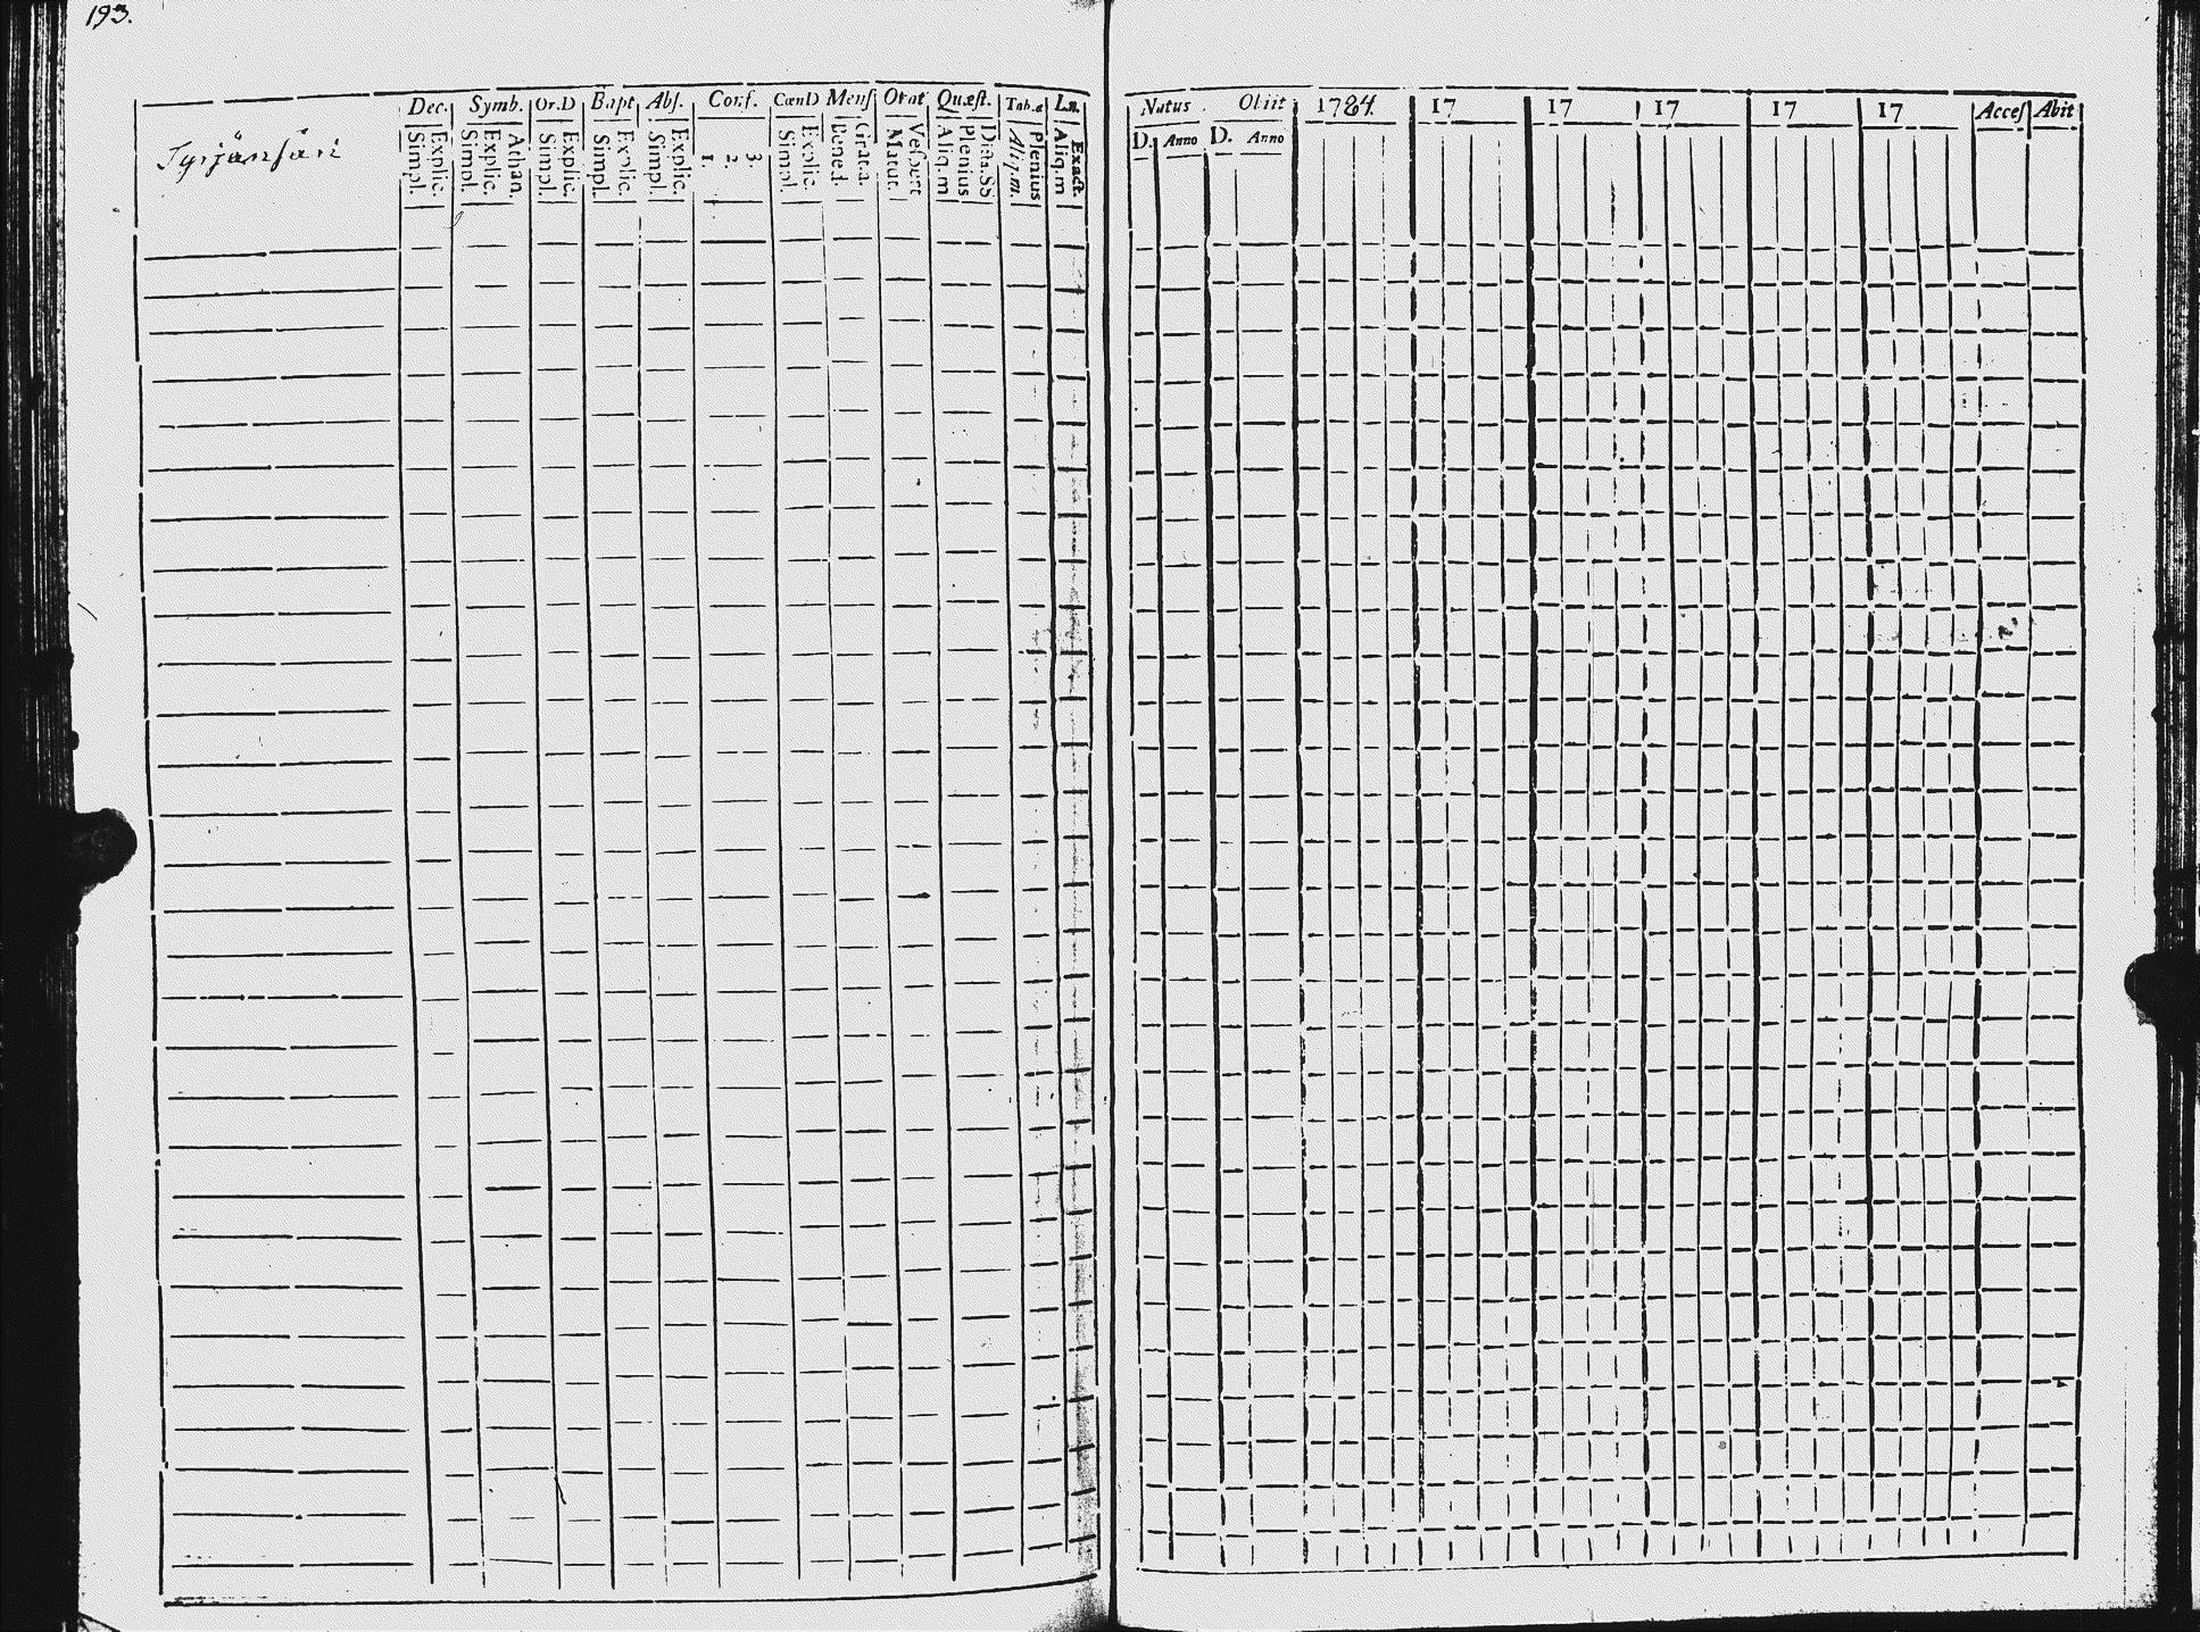 193.
Syrjänsäri
Dec. Symb. Or.D Bapt Abs. Conf. CœnD Mens Orat Quæst. Tab.æ L.n.
Simpl. Explic. Simpl. Explic. Athan. Simpl. Explic. Simpl. Explic. Simpl. Explic. 1. 2. 3. Simpl. Explic. Bened. Grat.a. Matut. Vespert Aliq.m Plenius Dicta.SS Aliq.m. Plenius Aliq.m Exact.
Natus Obiit 1784. 17 17 17 17 17 Acces Abit
D. Anno D. Anno